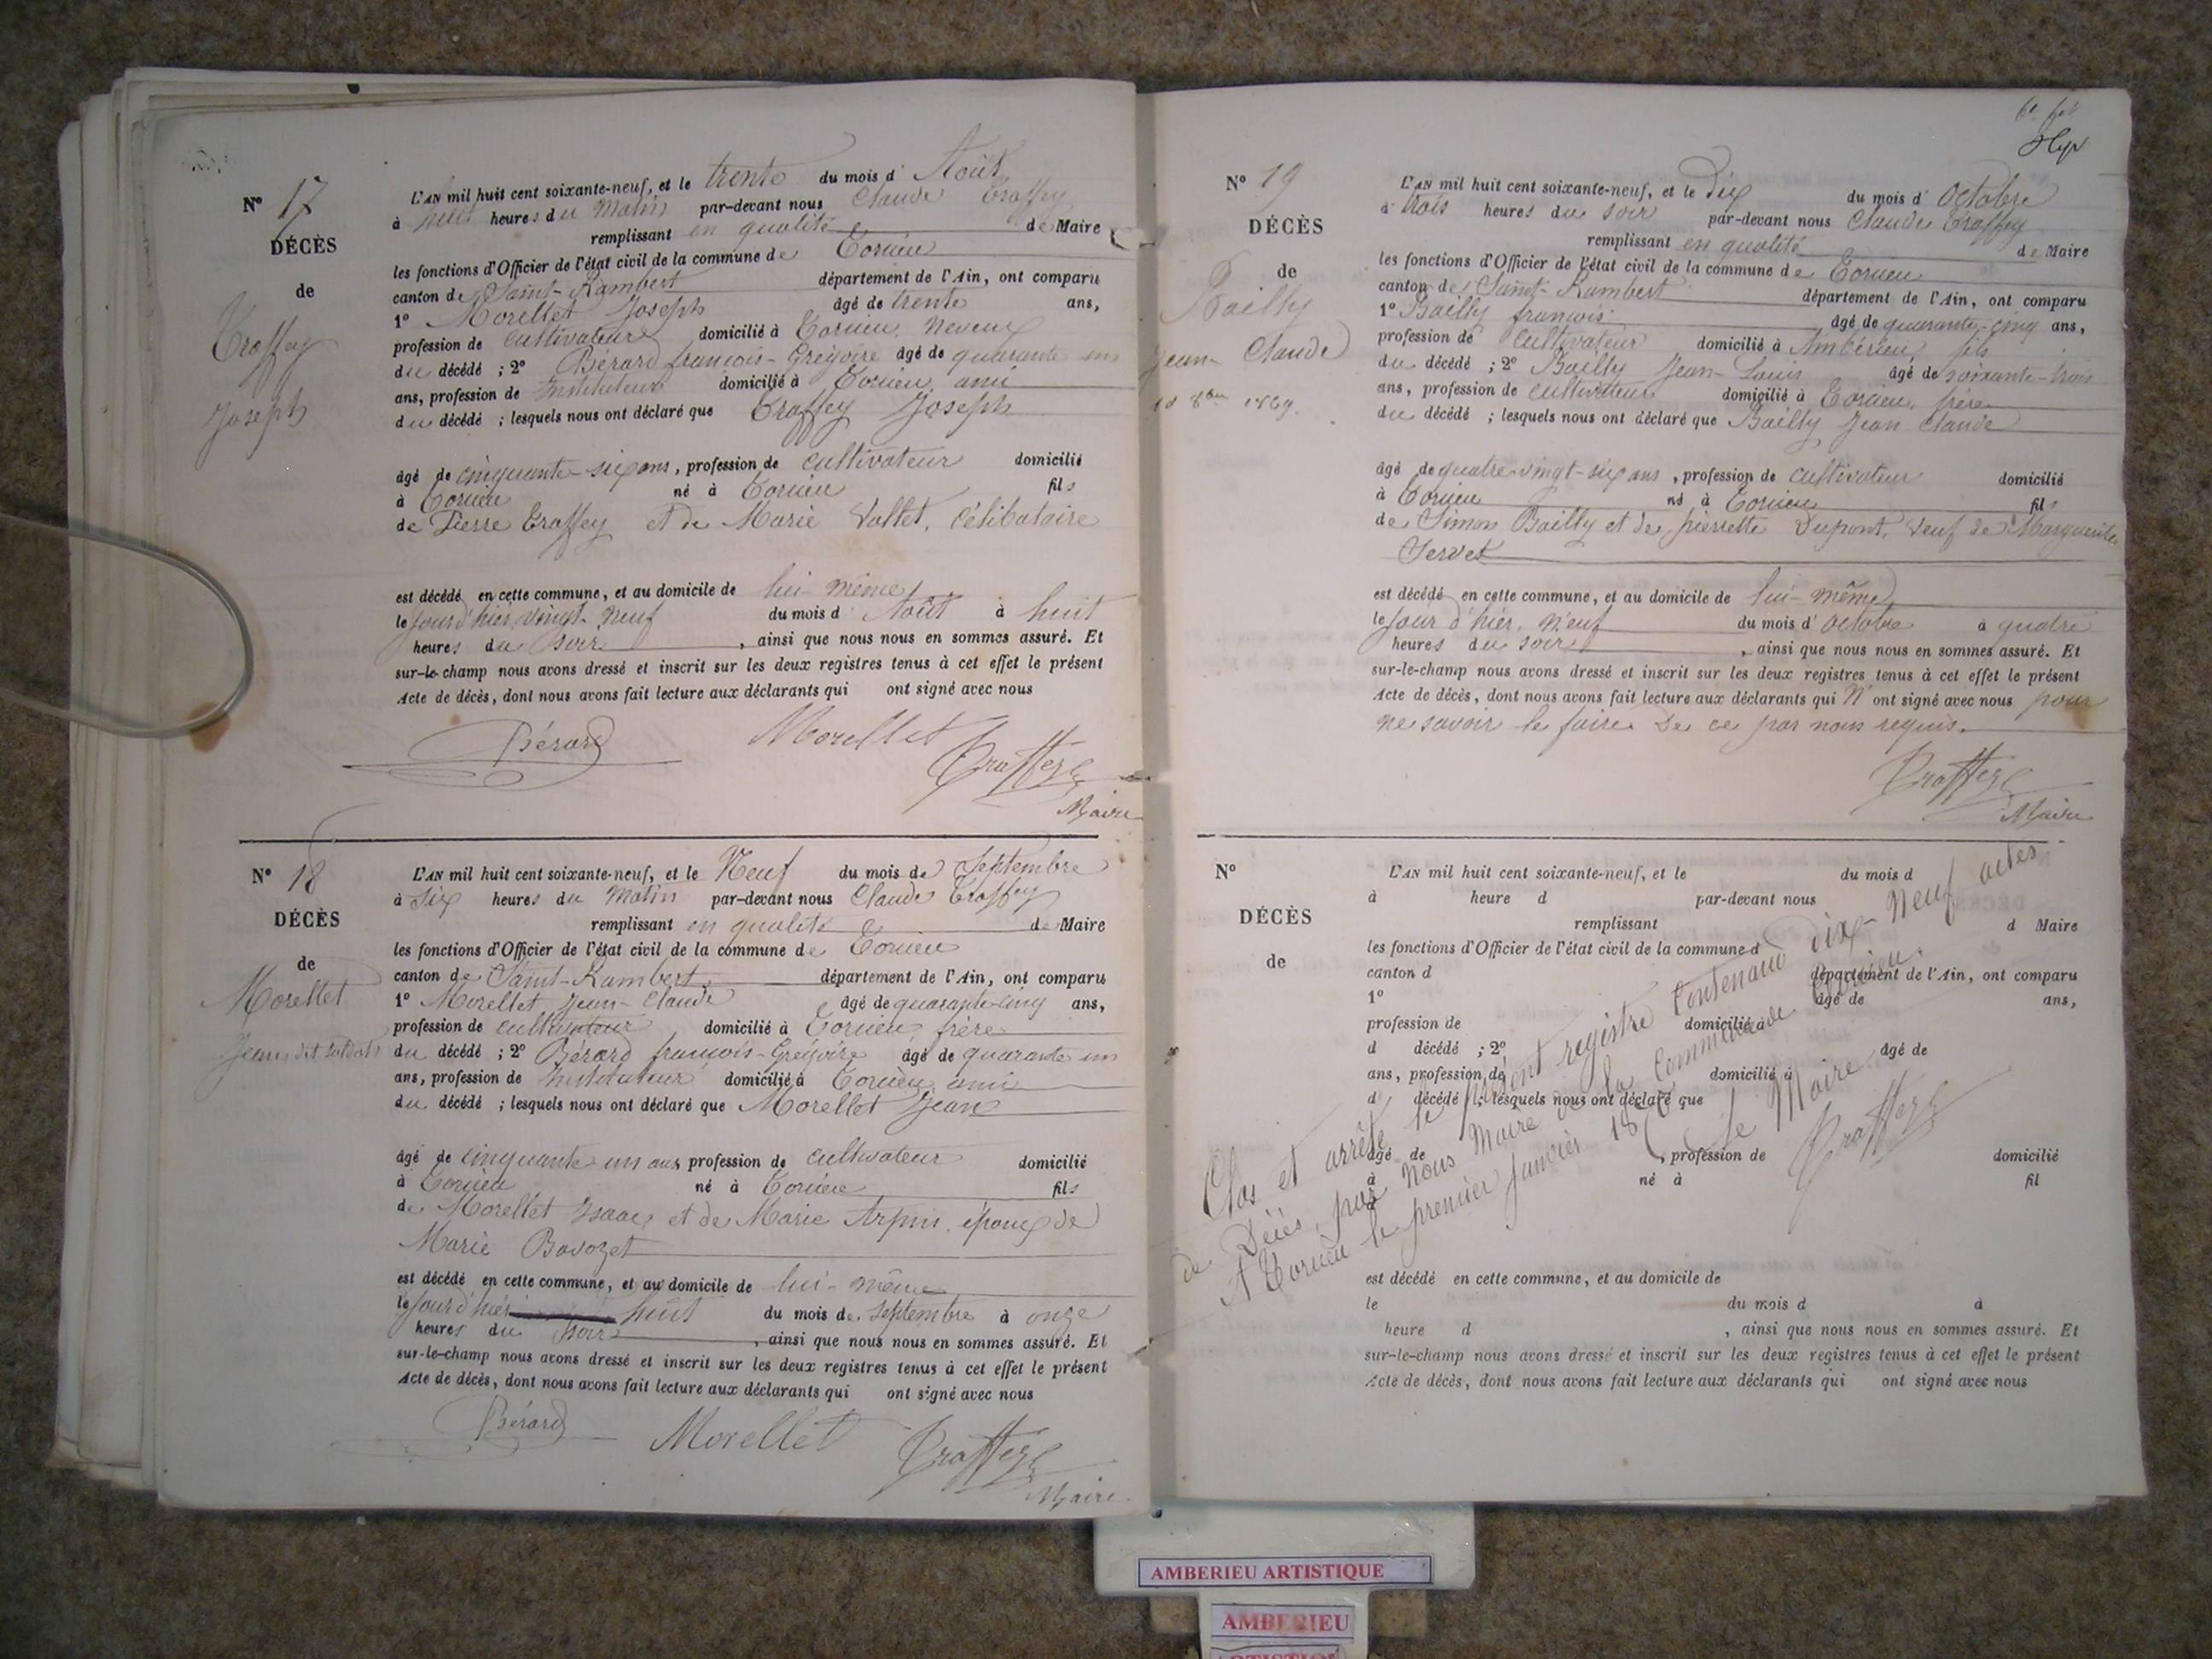 N° 17
DÉCÈS
de
Traffey
Joseph
L'AN mil huit cent soixante-neuf, et le trente du mois d'Août
à huit heures du Matin par-devant nous Claude Traffey
remplissant en qualité de Maire
les fonctions d'Officier de l'état civil de la commune de Torcieu
canton de Saint-Rambert département de l'Ain, ont comparu
1° Morellet Joseph âgé de trente ans,
profession de cultivateur domicilié à Torcieu, neveux
du décédé ; 2° Bérard françois-Grégoire âgé de quarante un
ans, profession de Instituteur domicilié à Torcieu, ami
du décédé ; lesquels nous ont déclaré que Traffey Joseph
âgé de cinquante-six ans, profession de cultivateur domicilié
à Torcieu né à Torcieu fils
de Pierre Traffey et de Marie Vallet, Célibataire
est décédé en cette commune, et au domicile de lui-même
le jour d'hier, vingt-neuf du mois d'Août à huit
heures du soir, ainsi que nous nous en sommes assuré. Et
sur-le-champ nous avons dressé et inscrit sur les deux registres tenus à cet effet le présent
Acte de décès, dont nous avons fait lecture aux déclarants qui ont signé avec nous
Bérard Morellet Traffey
Maire
N° 18
DÉCÈS
de
Morellet
Jean dit soldat
L'AN mil huit cent soixante-neuf, et le Neuf du mois de Septembre
à Six heures du Matin par-devant nous Claude Traffey
remplissant en qualité de Maire
les fonctions d'Officier de l'état civil de la commune de Torcieu
canton de Saint-Rambert département de l'Ain, ont comparu
1° Morellet Jean-Claude âgé de quarante-cinq ans,
profession de cultivateur domicilié à Torcieu, frère
du décédé ; 2° Bérard françois-Grégoire âgé de quarante un
ans, profession de Instituteur domicilié à Torcieu, ami
du décédé ; lesquels nous ont déclaré que Morellet Jean
âgé de cinquante un ans, profession de cultivateur domicilié
à Torcieu né à Torcieu fils
de Morellet Isaac et de Marie Arpin, époux de
Marie Bavozet
est décédé en cette commune, et au domicile de lui-même
le jour d'hier huit du mois de septembre à onze
heures du soir, ainsi que nous nous en sommes assuré. Et
sur-le-champ nous avons dressé et inscrit sur les deux registres tenus à cet effet le présent
Acte de décès, dont nous avons fait lecture aux déclarants qui ont signé avec nous
Bérard Morellet Traffey
Maire
N° 19
DÉCÈS
de
Bailly
Jean-Claude
10 8bre 1869.
L'AN mil huit cent soixante-neuf, et le Dix du mois d'Octobre
à trois heures du soir par-devant nous Claude Traffey
remplissant en qualité de Maire
les fonctions d'Officier de l'état civil de la commune de Torcieu
canton de Saint-Rambert département de l'Ain, ont comparu
1° Bailly françois âgé de quarante-cinq ans,
profession de cultivateur domicilié à Ambérieu, fils
du décédé ; 2° Bailly Jean-Louis âgé de soixante-trois
ans, profession de cultivateur domicilié à Torcieu, frère
du décédé ; lesquels nous ont déclaré que Bailly Jean Claude
âgé de quatre-vingt-six ans, profession de cultivateur domicilié
à Torcieu né à Torcieu fils
de Simon Bailly et de pierrette Dupont, veuf de Marguerite
Servet
est décédé en cette commune, et au domicile de lui-même
le jour d'hier, neuf du mois d'octobre à quatre
heures du soir, ainsi que nous nous en sommes assuré. Et
sur-le-champ nous avons dressé et inscrit sur les deux registres tenus à cet effet le présent
Acte de décès, dont nous avons fait lecture aux déclarants qui N'ont signé avec nous pour
ne savoir le faire De ce par nous requis.
Traffey
Maire
N°
DÉCÈS
de
L'AN mil huit cent soixante-neuf, et le du mois d
à heure d par-devant nous
remplissant d Maire
les fonctions d'Officier de l'état civil de la commune d
canton d département de l'Ain, ont comparu
1° âgé de ans,
profession de domicilié à
d décédé ; 2° âgé de
ans, profession de domicilié à
d décédé ; lesquels nous ont déclaré que
âgé de , profession de domicilié
à né à fil
est décédé en cette commune, et au domicile de
le du mois d à
heure d , ainsi que nous nous en sommes assuré. Et
sur-le-champ nous avons dressé et inscrit sur les deux registres tenus à cet effet le présent
Acte de décès, dont nous avons fait lecture aux déclarants qui ont signé avec nous
Clos et arrêté le présent registre Contenant dix-Neuf actes
de Décès, par Nous Maire de la Commune de Torcieu.
A Torcieu le premier Janvier 1870
Le Maire
Traffey
AMBERIEU ARTISTIQUE
AMBERIEU
ARTISTIQUE